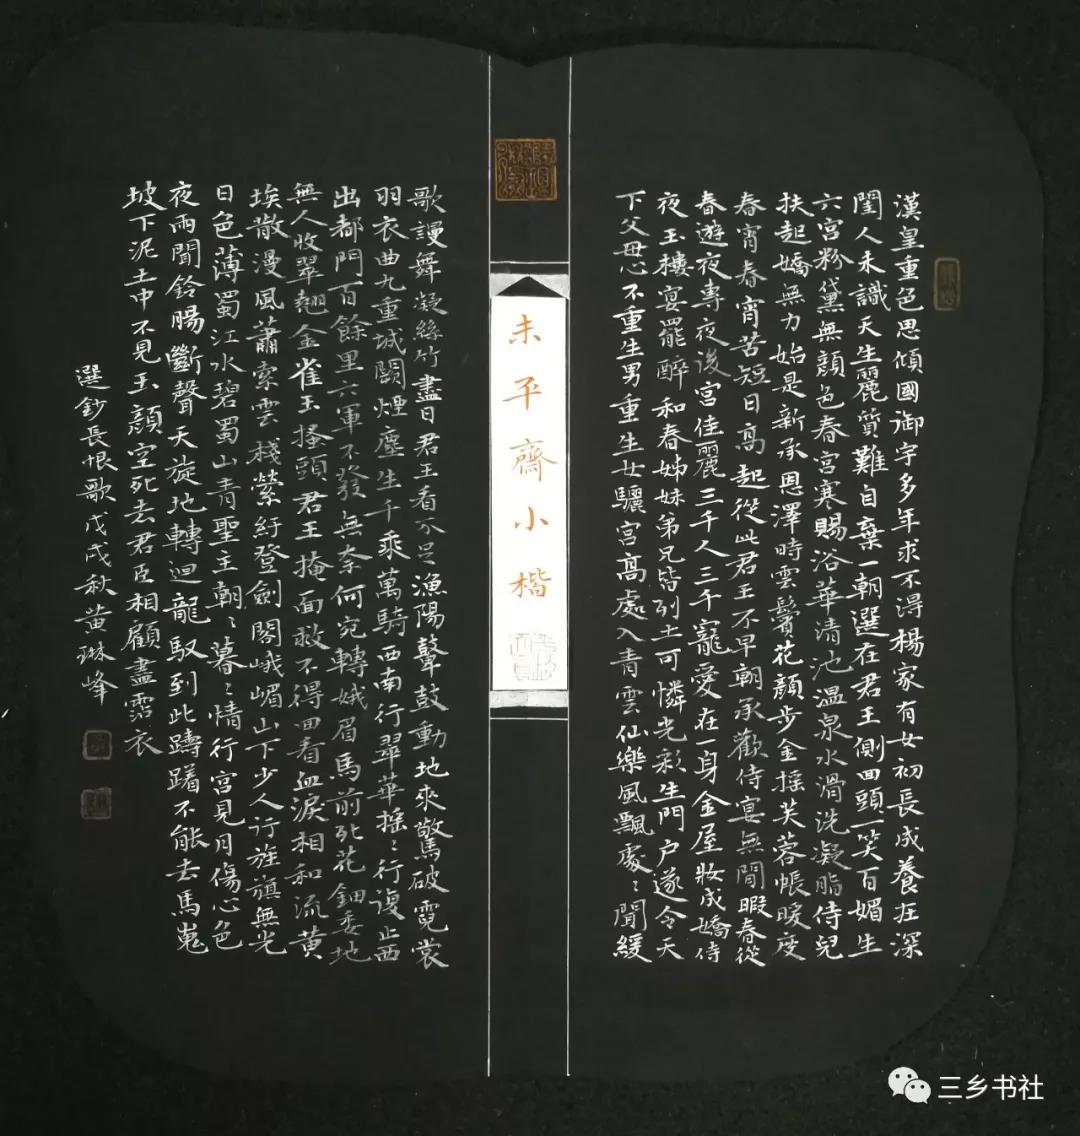 漢皇重色思傾國御宇多年求不得楊家有女初長成養在深
閨人未識天生麗質難自棄一朝選在君王側回頭一笑百媚生
六宮粉黛無顏色春宮寒賜浴華清池溫泉水滑洗凝脂侍兒
扶起嬌無力始是新承恩澤時雲鬢花顏步金搖芙蓉帳暖度
春宵春宵苦短日高起從此君王不早朝承歡侍宴無閒暇春從
春遊夜專夜後宮佳麗三千人三千寵愛在一身金屋妝成嬌侍
夜玉樓宴罷醉和春姊妹弟兄皆列土可憐光彩生門户遂令天
下父母心不重生男重生女驪宮高處入青雲仙樂風飄處〻聞緩
未平齋小楷
歌謾舞凝絲竹盡日君王看不足漁陽鼙鼓動地來驚破霓裳
羽衣曲九重城闕煙塵生千乘萬騎西南行翠華搖〻行復止西
出都門百餘里六軍不發無奈何宛轉娥眉馬前死花鈿委地
無人收翠翹金雀玉搔頭君王掩面救不得回看血淚相和流黃
埃散漫風蕭索雲棧縈紆登劍閣峨嵋山下少人行旌旗無光
日色薄蜀江水碧蜀山青聖主朝〻暮〻情行宮見月傷心色
夜雨聞鈴腸斷聲天旋地轉迴龍馭到此躊躇不能去馬嵬
坡下泥土中不見玉顏空死去君臣相顧盡霑衣
選鈔長恨歌戊戌秋黃琳峰
三乡书社